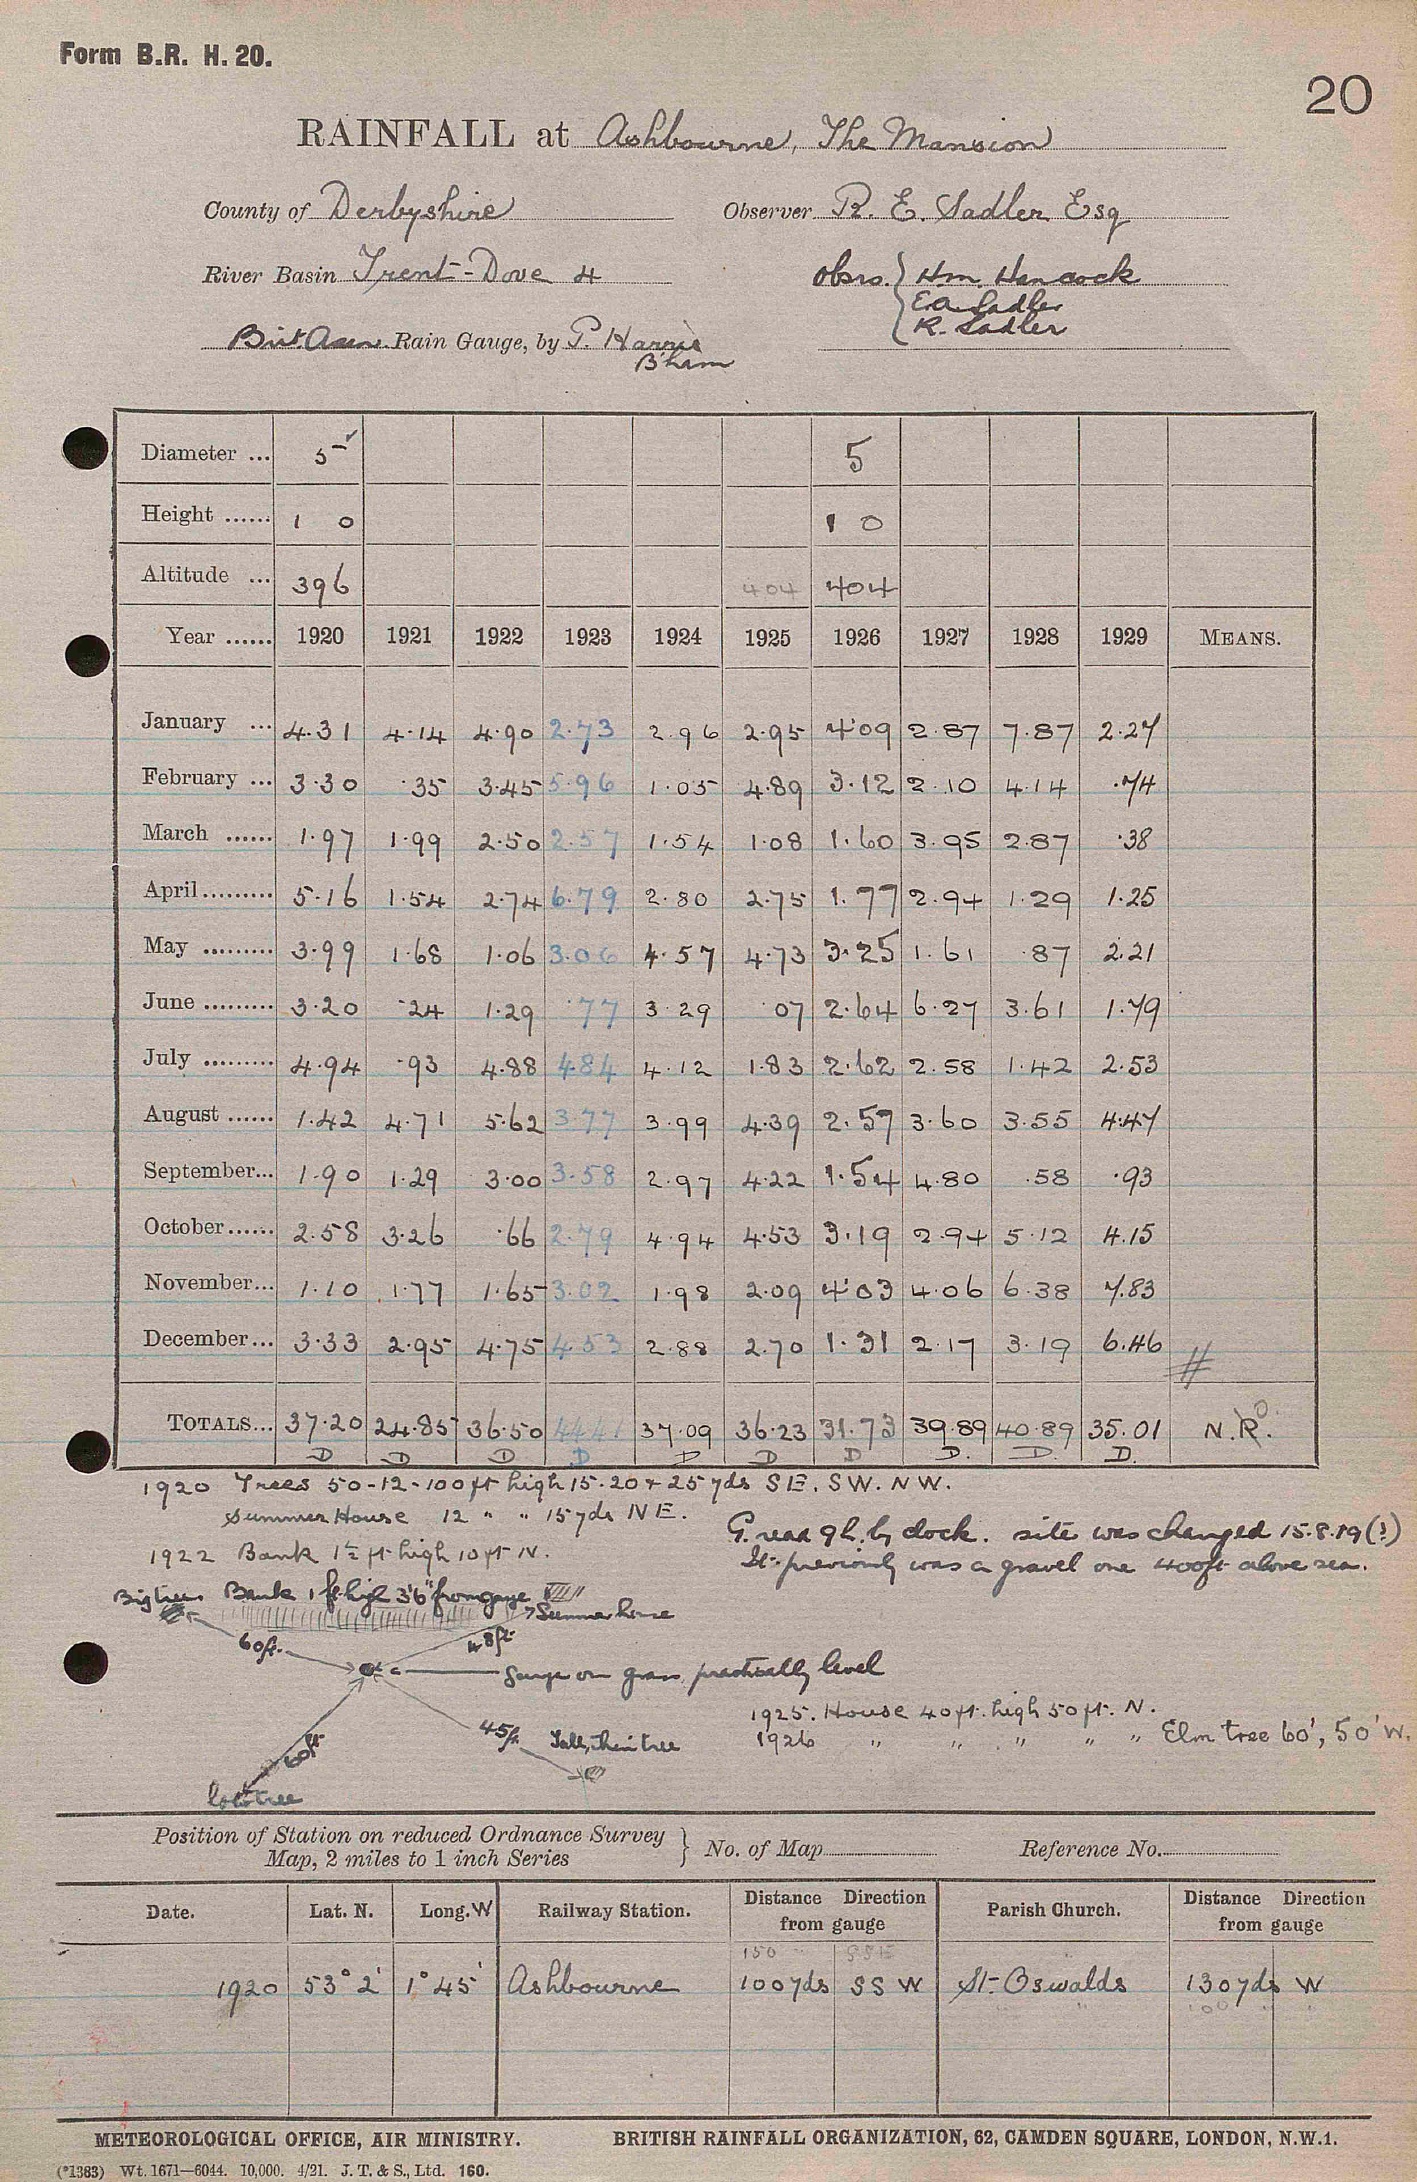 Form B.R. H. 20.
20
RAINFALL at Ashbourne, The Mansion
County of Derbyshire Observer R. E. Sadler Esq
River Basin Trent-Dove 4 Obsrs. { Wm. Hancock
E.A. Sadler
R. Sadler
Brit Assn. Rain Gauge, by P. Harris
B'ham
Diameter ... 5 5
Height ...... 1 0 1 0
Altitude ... 396 404 404
Year ...... 1920 1921 1922 1923 1924 1925 1926 1927 1928 1929 MEANS.
January ... 4.31 4.14 4.90 2.73 2.96 2.95 4.09 2.87 7.87 2.27
February ... 3.30 .35 3.45 5.96 1.05 4.89 3.12 2.10 4.14 .74
March ...... 1.97 1.99 2.50 2.57 1.54 1.08 1.60 3.95 2.87 .38
April ......... 5.16 1.54 2.74 6.79 2.80 2.75 1.77 2.94 1.29 1.25
May ......... 3.99 1.68 1.06 3.06 4.57 4.73 3.25 1.61 .87 2.21
June ......... 3.20 .24 1.29 .77 3.29 .07 2.64 6.27 3.61 1.79
July ......... 4.94 .93 4.88 4.84 4.12 1.83 2.62 2.58 1.42 2.53
August ...... 1.42 4.71 5.62 3.77 3.99 4.39 2.57 3.60 3.55 4.47
September... 1.90 1.29 3.00 3.58 2.97 4.22 1.54 4.80 .58 .93
October ...... 2.58 3.26 .66 2.79 4.94 4.53 3.19 2.94 5.12 4.15
November... 1.10 1.77 1.65 3.02 1.98 2.09 4.03 4.06 6.38 7.83
December... 3.33 2.95 4.75 4.53 2.88 2.70 1.31 2.17 3.19 6.46
TOTALS... 37.20 24.85 36.50 44.41 37.09 36.23 31.73 39.89 40.89 35.01 N.R.
D D D D D D D D. D. D.
1920 Trees 50-12-100 ft high 15.20 & 25 yds SE. SW. NW.
Summer House 12 " " 15 yds NE.
G. read 9h. by clock. site was changed 15.8.19 (?)
1922 Bank 1½ ft high 10 ft N.
It previously was a gravel one 400ft above sea.
Big trees Bank 1 ft high 3'6" from gauge
Summer house
60ft. 48ft.
Gauge on grass, practically level
1925. House 40 ft. high 50 ft. N.
45ft. Tall, thin tree
1926 " " " " " Elm tree 60', 50' W.
60ft
low tree
Position of Station on reduced Ordnance Survey
Map, 2 miles to 1 inch Series } No. of Map Reference No.
Date. Lat. N. Long. W Railway Station. Distance Direction from gauge Parish Church. Distance Direction from gauge
150 SSE
1920 53° 2' 1° 45' Ashbourne 100 yds SS W St. Oswalds 130 yds W
100
METEOROLOGICAL OFFICE, AIR MINISTRY. BRITISH RAINFALL ORGANIZATION, 62, CAMDEN SQUARE, LONDON, N.W.1.
(*1383) Wt. 1671—6044. 10,000. 4/21. J. T. & S., Ltd. 160.